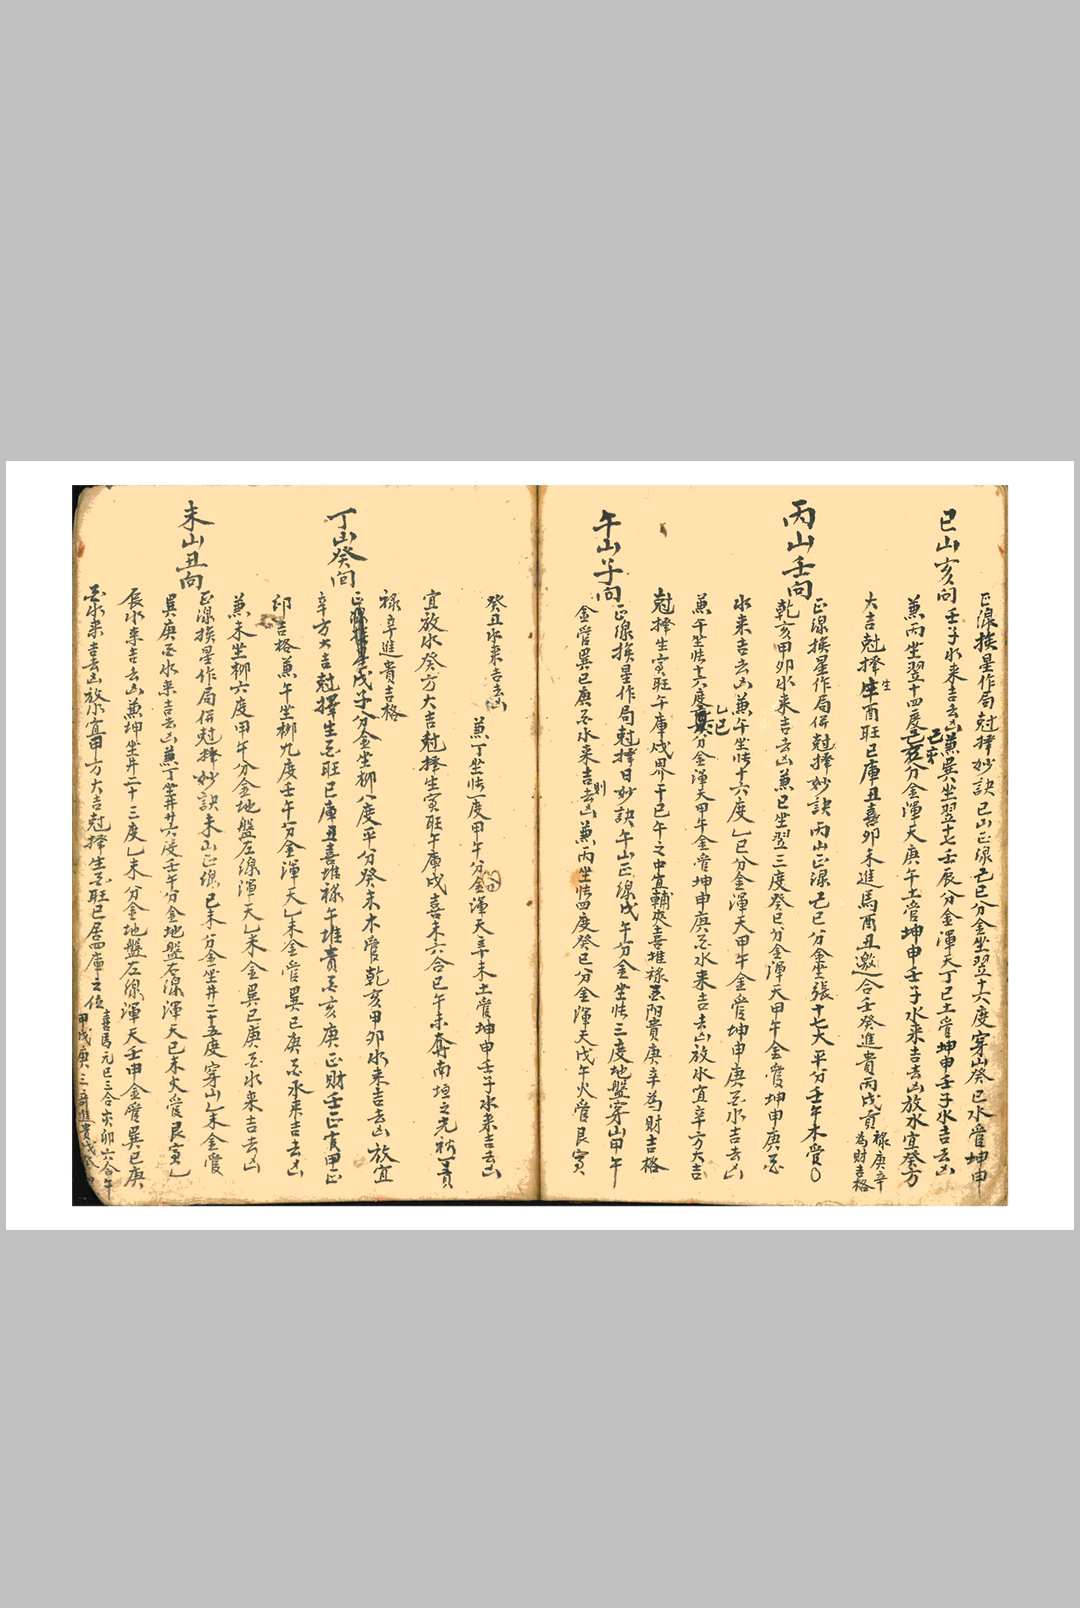 巳山亥向
正線挨星作局尅擇妙訣巳山正線己巳分金坐翌十六度穿山癸巳水管坤申
壬子水来吉去凶兼巽坐翌十七壬辰分金渾天丁巳土管坤申壬子水吉去凶
兼丙坐翌十四度己亥分金渾天庚午土管坤申壬子水来吉去凶放水宜癸方
大吉尅擇生酉旺巳庫丑喜卯未進馬酉丑邀合壬癸進貴丙戊貢祿庚辛為財吉格
丙山壬向
正線挨星作局併尅擇妙訣丙山正線己巳分金坐張十七太平分壬午木管
乾亥甲卯水来吉去凶兼巳坐翌三度癸巳分金渾天甲午金管坤申庚
水来吉去凶兼午坐張十六度乙巳分金渾天甲午金管坤申庚水吉去凶
兼午坐張十六度乙巳分金渾天甲午金管坤申庚水来吉去凶放水宜辛方大吉
尅擇生寅旺午庫戌界于巳午之中宜輔夾喜堆祿貴庚辛為財吉格
午山子向
正線挨星作局尅擇日妙訣午山正線戊午分金坐張三度地盤穿山甲午
金管巽巳庚水来吉去則凶兼丙坐張四度癸巳分金渾天戊午火管艮寅
癸丑水来吉去凶
兼丁坐張一度甲午分金渾天辛未土管坤申壬子水来吉去凶
宜放水癸方大吉尅擇生寅旺午庫戌喜未六合巳午未奪南垣之光貴
祿辛進貴吉格
丁山癸向
正線戊子分金坐柳八度平分癸未木管乾亥甲卯水来吉去凶放宜
辛方大吉尅擇生旺巳庫丑喜堆祿午堆貴亥庚正財壬正官甲正
印吉格兼午坐柳九度壬午分金渾天乙未金管巽巳庚水来吉去凶
兼未坐柳六度甲午分金地盤左線渾天乙未金巽巳庚水来吉去凶
未山丑向
正線挨星作局併尅擇妙訣未山正線己未分金坐井二十五度穿山乙未金管
巽庚水来吉去凶兼丁坐井廿六度壬午分金地盤右線渾天己未火管艮寅乙
辰水来吉去凶兼坤坐井二十三度乙未分金地盤左線渾天壬申金管巽巳庚
水来吉去凶放水宜甲方大吉尅擇生旺巳居四庫之位喜馬元巳三合亥卯六合午甲戊庚三奇進貴